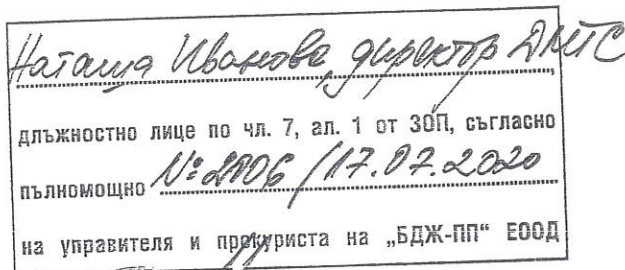 Наташа Иванова, директор ДМТС
длъжностно лице по чл. 7, ал. 1 от ЗОП, съгласно
пълномощно № 2106 / 17.07.2020
на управителя и прокуриста на „БДЖ-ПП“ ЕООД